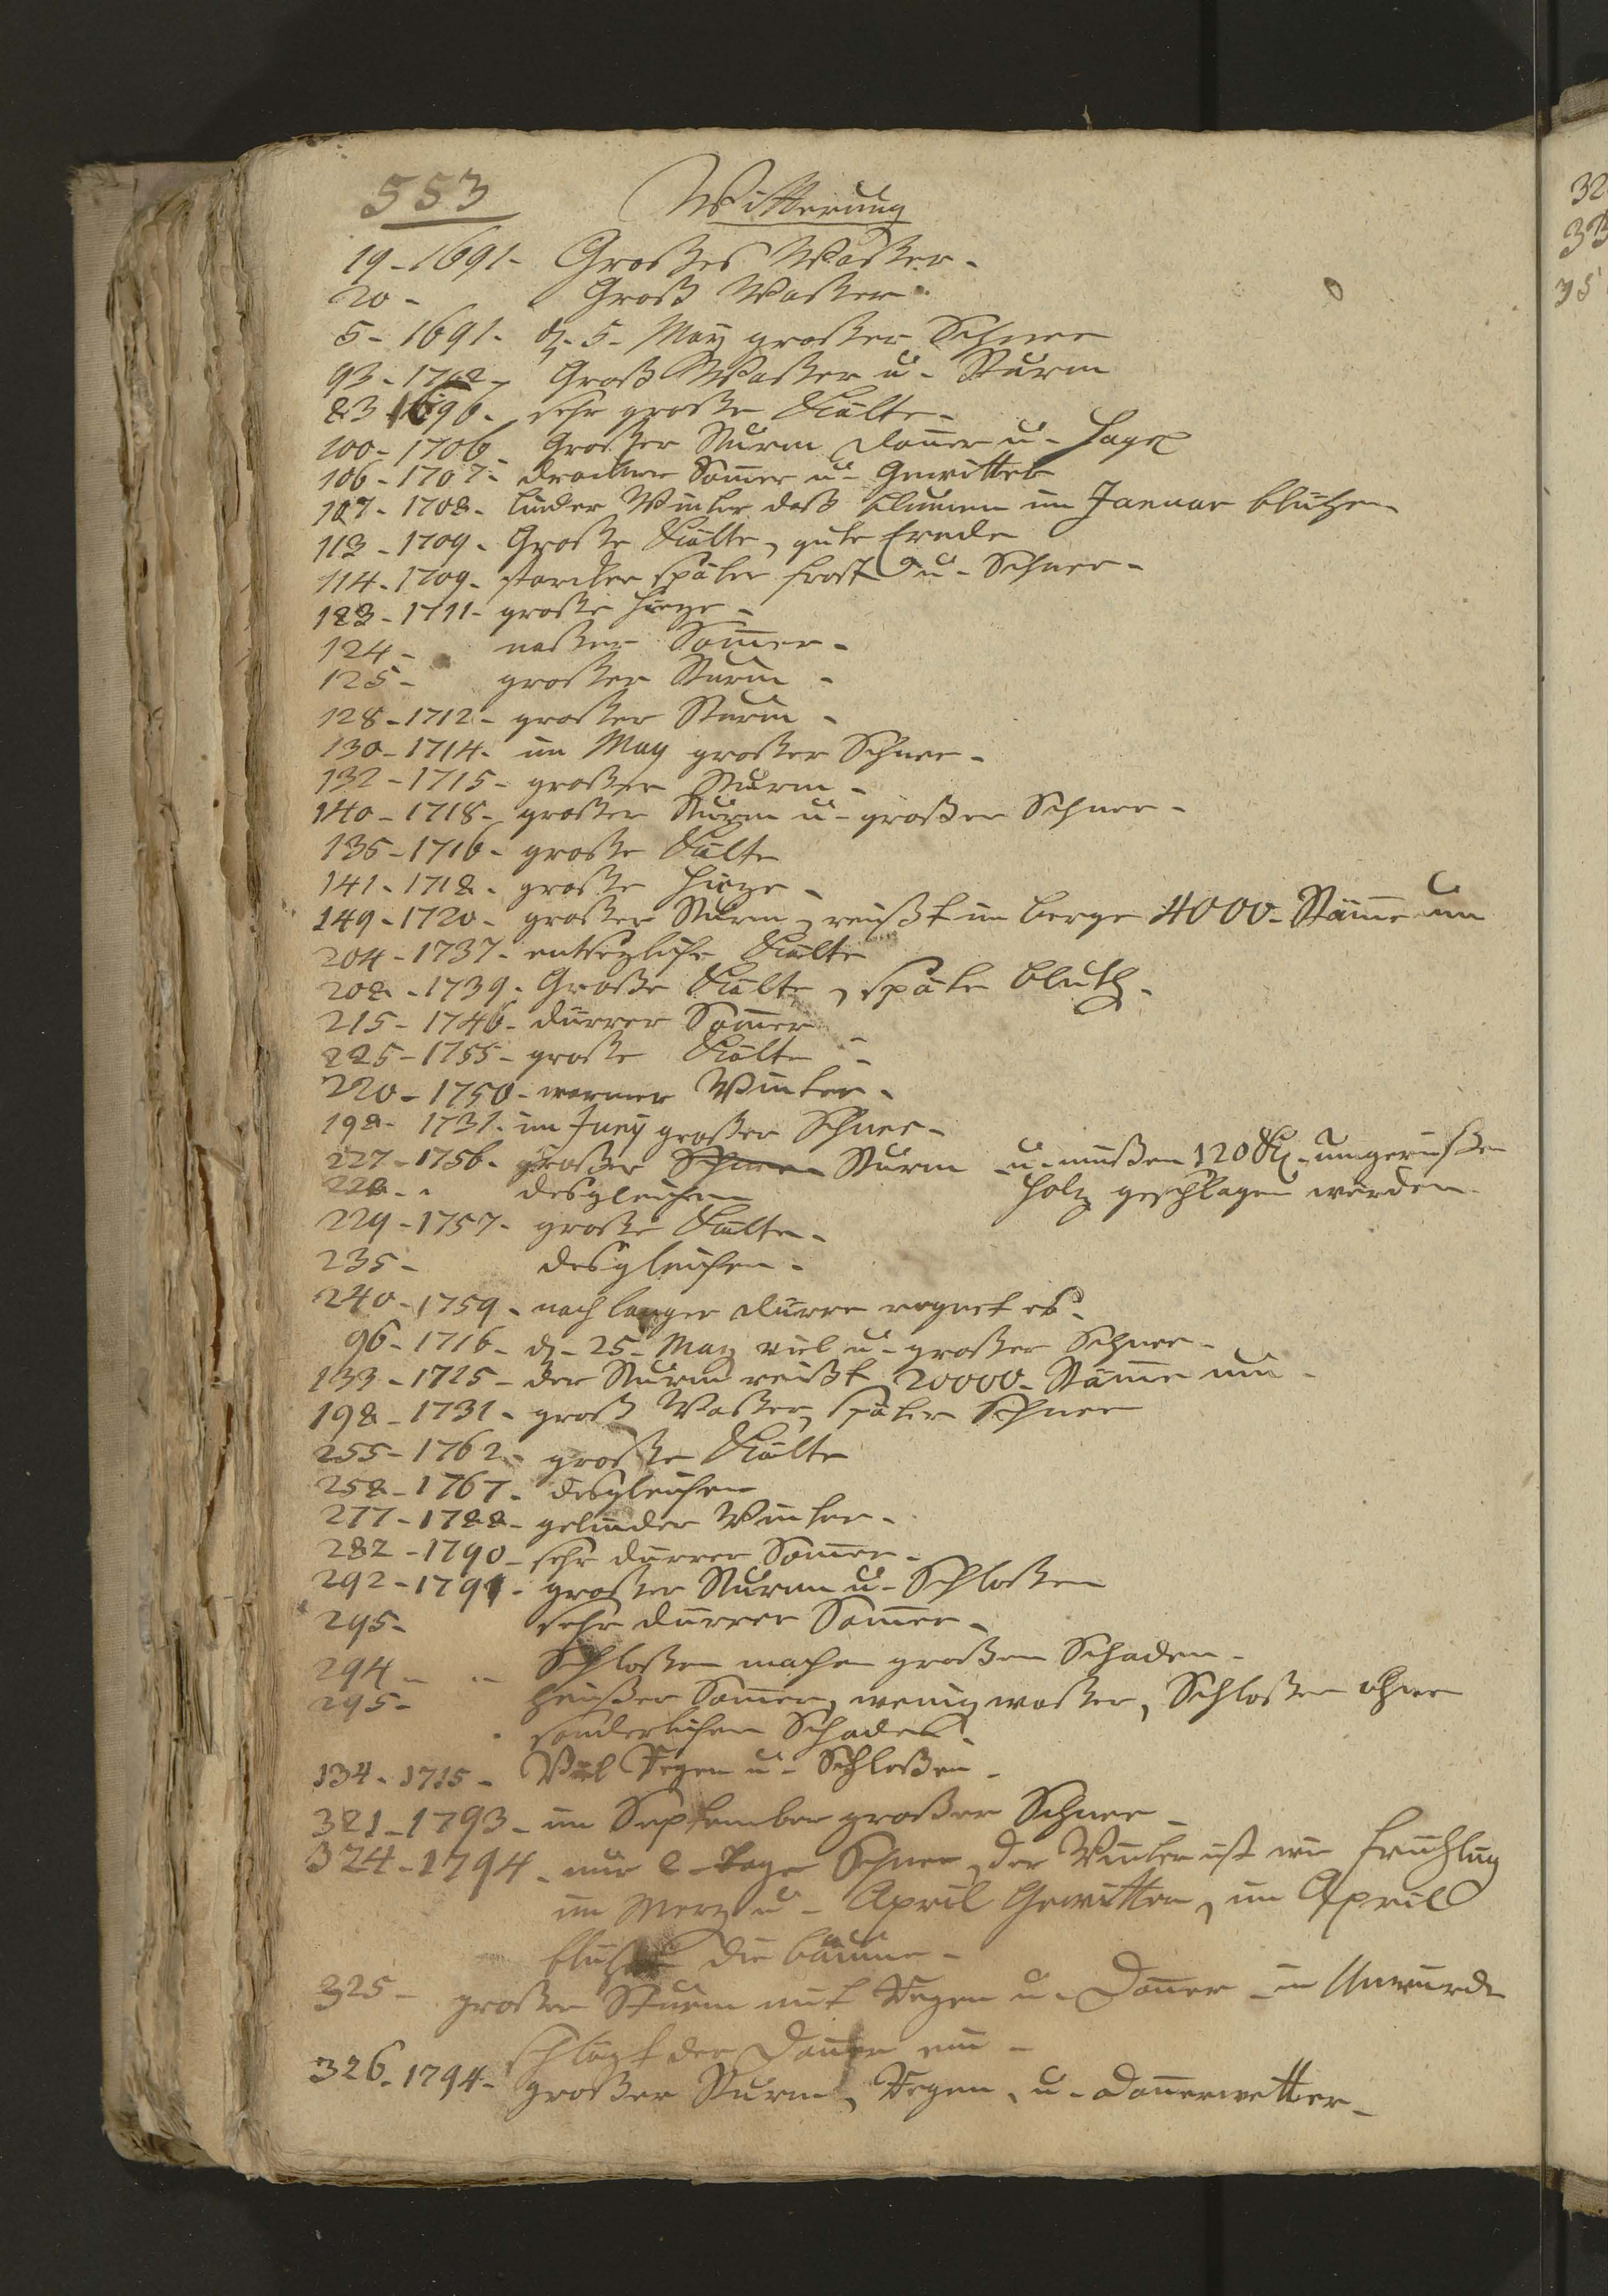 553 Witterung
19 - 1691 - Großes Waßer -
20 - Groß Waßer.
5 - 1691 - d. 5 - May großer Schnee
93 - 1702 - Groß Waßer u - Sturm
83 1696 - sehr große Kälte -
100 - 1706 - Großer Sturm Doner u - Hagel
106 - 1707 - Somer u - Gewitter
107 - 1708 - linder Winter daß Blumen im Januar blühen
113 - 1709 - Große Kälte, gute Ernde
114 - 1709 - starcker später Frost u - Schnee -
123 - 1711 - große Hieze -
124 - naßer Somer -
125 - großer Sturm -
128 - 1712 - großer Sturm -
130 - 1714 - im May großer Schnee -
132 - 1715 - großer Sturm -
140 - 1718 - großer Sturm u - großer Schnee -
135 - 1716 - große Kälte
141 - 1718 - große Hieze -
149 - 1720 - großer Sturm, reißt im Berge 4000 - Stäme um
204 - 1737 - entsezliche Kälte
208 - 1739 - Große Kälte, späte Bluth -
215 - 1746 - dürrer Somer
225 - 1755 - große Kälte -
220 - 1750 - warmer Winter -
198 - 1731 - im Juny großer Schnee -
227 - 1756 - großer Schnee Sturm u - müßen 120 umgerißen
228 - desgleichen Holtz geschlagen werden -
229 - 1757 - große Kälte -
235 - desgleichen -
240 - 1759 - nach langer dürre regnet es -
96 - 1716 - d - 25 - May viel u - großer Schnee -
133 - 1715 - der Sturm reißt 20000 - Stäme um -
198 - 1731 - groß Waßer, später Schnee
255 - 1762 - große Kälte
258 - 1767 - desgleichen
277 - 1788 - gelinder Winter -
282 - 1790 - sehr dürrer Somer -
292 - 1791 - großer Sturm u - Schloßen
295 - sehr dürrer Somer -
294 - Schloßen machen großen Schaden -
295 - heißer Somer, wenig waßer, Schloßen ohne
sonderlichen Schaden -
134 - 1715 - Viel Regen u - Schloßen -
321 - 1793 - im September großer Schnee -
324 - 1794 - nur 2 - Tage Schnee, der Winter ist wie Frühling
im Merz u - April Gewitter, im April
blühen die bäume -
325 - großer Sturm mit Regen u - Doner - in Unwürde
schlägt der Doner ein -
326 - 1794 - großer Sturm, Regen, u - Donerwetter -
32
33
35